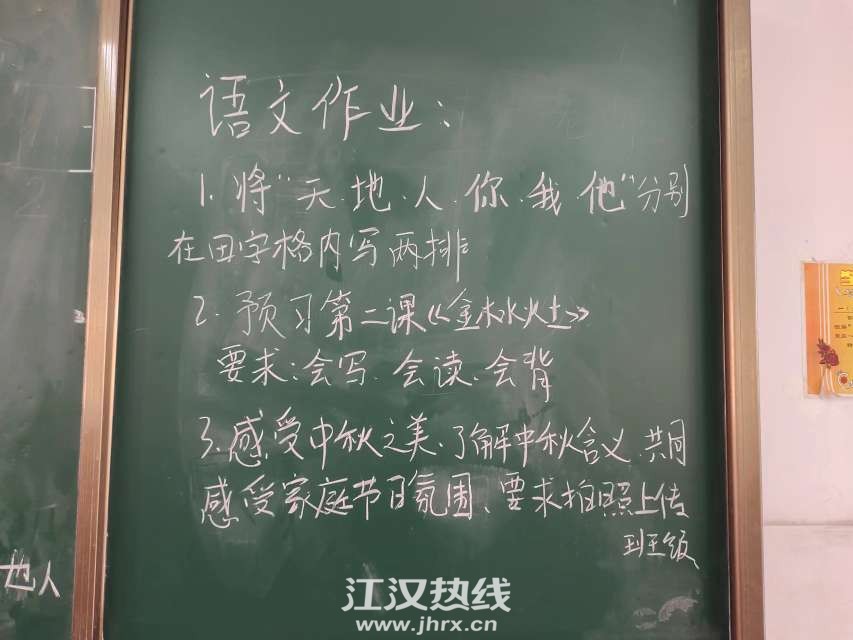 语文作业：
1. 将“天.地.人.你.我.他”分别
在田字格内写两排
2. 预习第二课《金木水火土》
要求：会写.会读.会背
3. 感受中秋之美.了解中秋含义.共同
感受家庭节日氛围、要求拍照上传
班级
地人
江汉热线
www.jhrx.cn